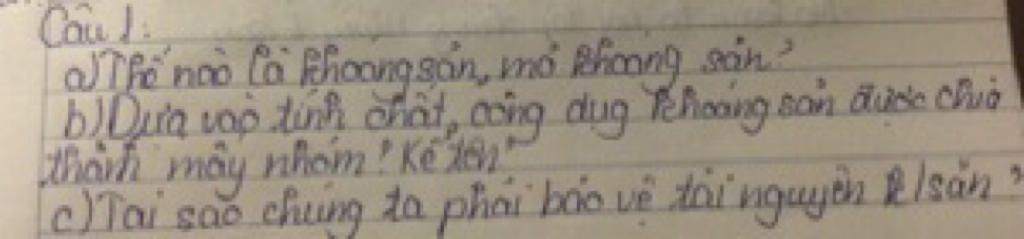 Câu 1:
a) Thế nào là khoáng sản, mỏ khoáng sản?
b) Dựa vào tính chất, công dụg khoáng sản được chia
thành mấy nhóm? Kể tên?
c) Tại sao chúng ta phải bảo vệ tài nguyên k/sản?